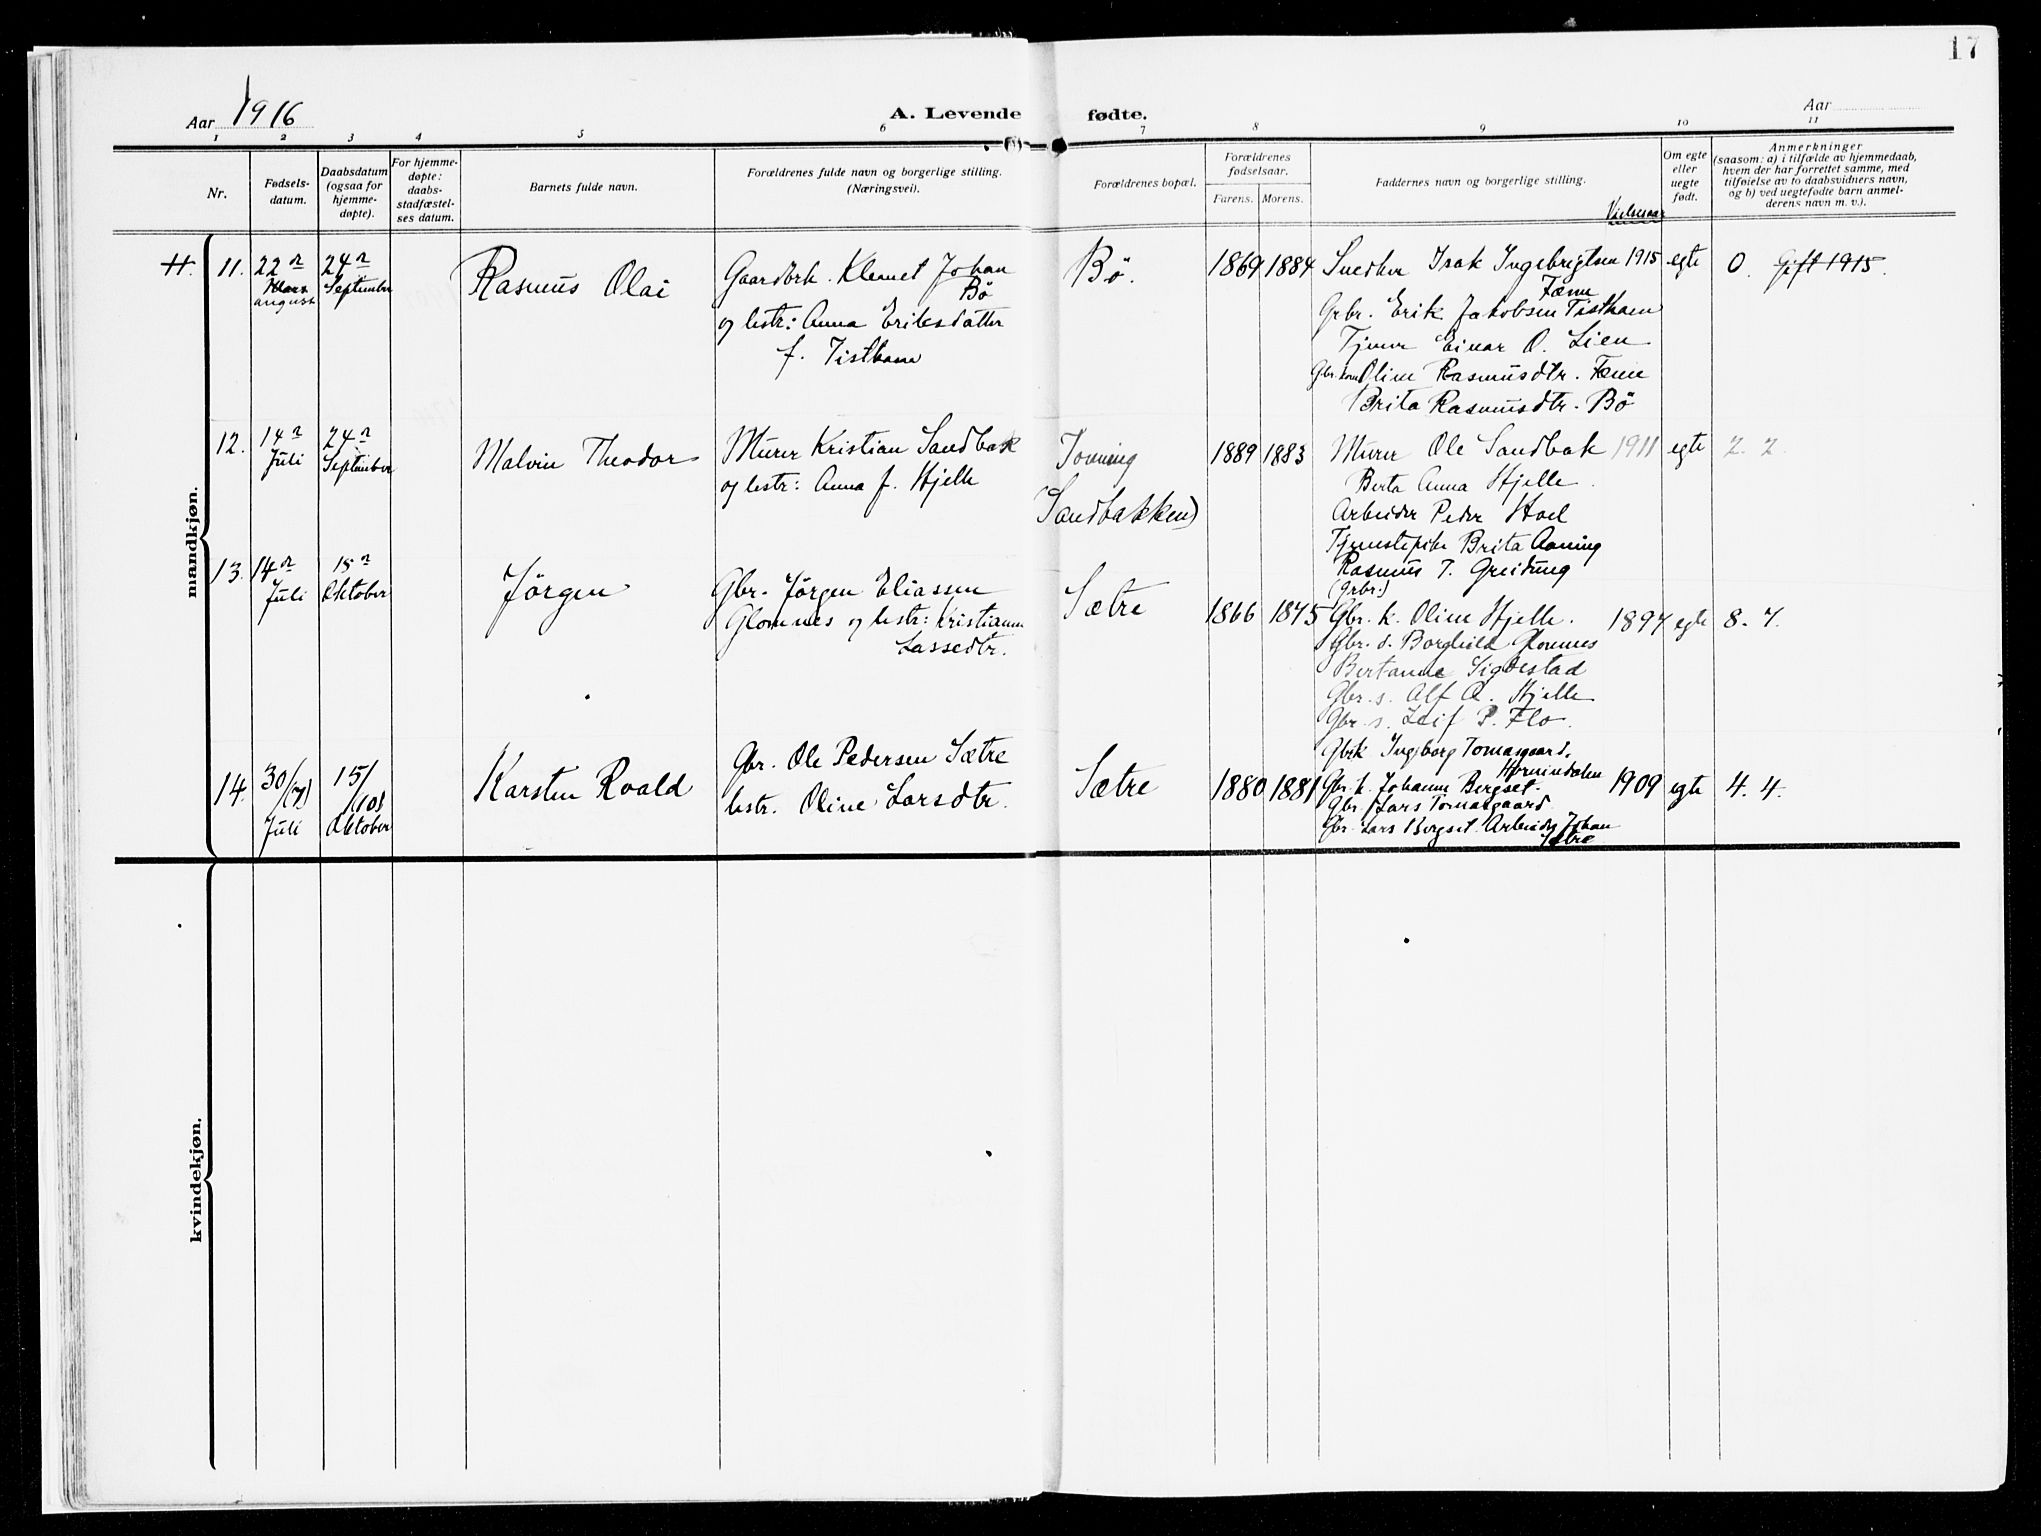 17
Aar 1916
A. Levende fødte.
Aar
1 2 3 4 5 6 7 8 9 10 11
Nr.
Fødsels-
datum.
Daabsdatum
(ogsaa for
hjemme-
døpte).
For hjemme-
døpte:
daabs-
stadfæstel-
ses datum.
Barnets fulde navn.
Forældrenes fulde navn og borgerlige stilling.
(Næringsvei).
Forældrenes bopæl.
Forældrenes
fødselsaar.
Farens. Morens.
Faddernes navn og borgerlige stilling.
Vielsesaar
Om egte
eller
uegte
født.
Anmerkninger
(saasom: a) i tilfælde av hjemmedaab,
hvem der har forrettet samme, med
tilføielse av to daabsvidners navn,
og b) ved uegtefødte barn anmel-
derens navn m. v.).
mandkjøn.
11. 11.
22n
august
24n
September
Rasmus Olai
Gaardbrk. Klemet Johan
Bö
og hstr: Anna Eriksdatter
f. Tistham
Bö.
1869 1884
Snedker Isak Ingebrigtsen 1915
Fæme
Grbr. Erik Jakobsen Tistham
Tjener Einar O. Lien
Gbr. kone Oline Rasmusdtr. Fæme
Brita Rasmusdtr. Bö
egte
0. Gift 1915.
12.
14n
Juli
24n
September
Malvin Theodor
Murer Kristian Sandbak
og hstr: Anna f. Hjelle
Tonning
Sandbakken)
1889 1883
Murer Ole Sandbak 1911
Berta Anna Hjelle.
Arbeider Peder Hoel
Tjenestepike Brita Aaning
Rasmus T. Greidung
(Grbr.)
egte
2. 2.
13.
14n
Juli
15n
Oktober
Jörgen
Gbr. Jörgen Eliassen
Glomnes og hstr: Kristianne
Lassedtr.
Sætre
1866 1875
Gbr. k. Oline Hjelle. 1897
Gbr. d. Borghild Glomnes
Bertanne Sigdestad
Gbr. s. Alf A. Hjelle
Gbr. s. Leif P. Flo.
egte
8. 7.
14.
30/(7)
Juli
15/
(10)
Oktober
Karsten Roald
Gbr. Ole Pedersen Sætre
hstr. Oline Larsdtr.
Sætre
1880 1881
Gbrk Ingeborg Tomasgaard,
Hornindalen
Gbr. k. Johanne Bergset. 1909
Gbr. Lars Tomasgaard
Gbr. Lars Bergset. Arbeider Johan
Sætre
egte
4. 4.
kvindekjøn.